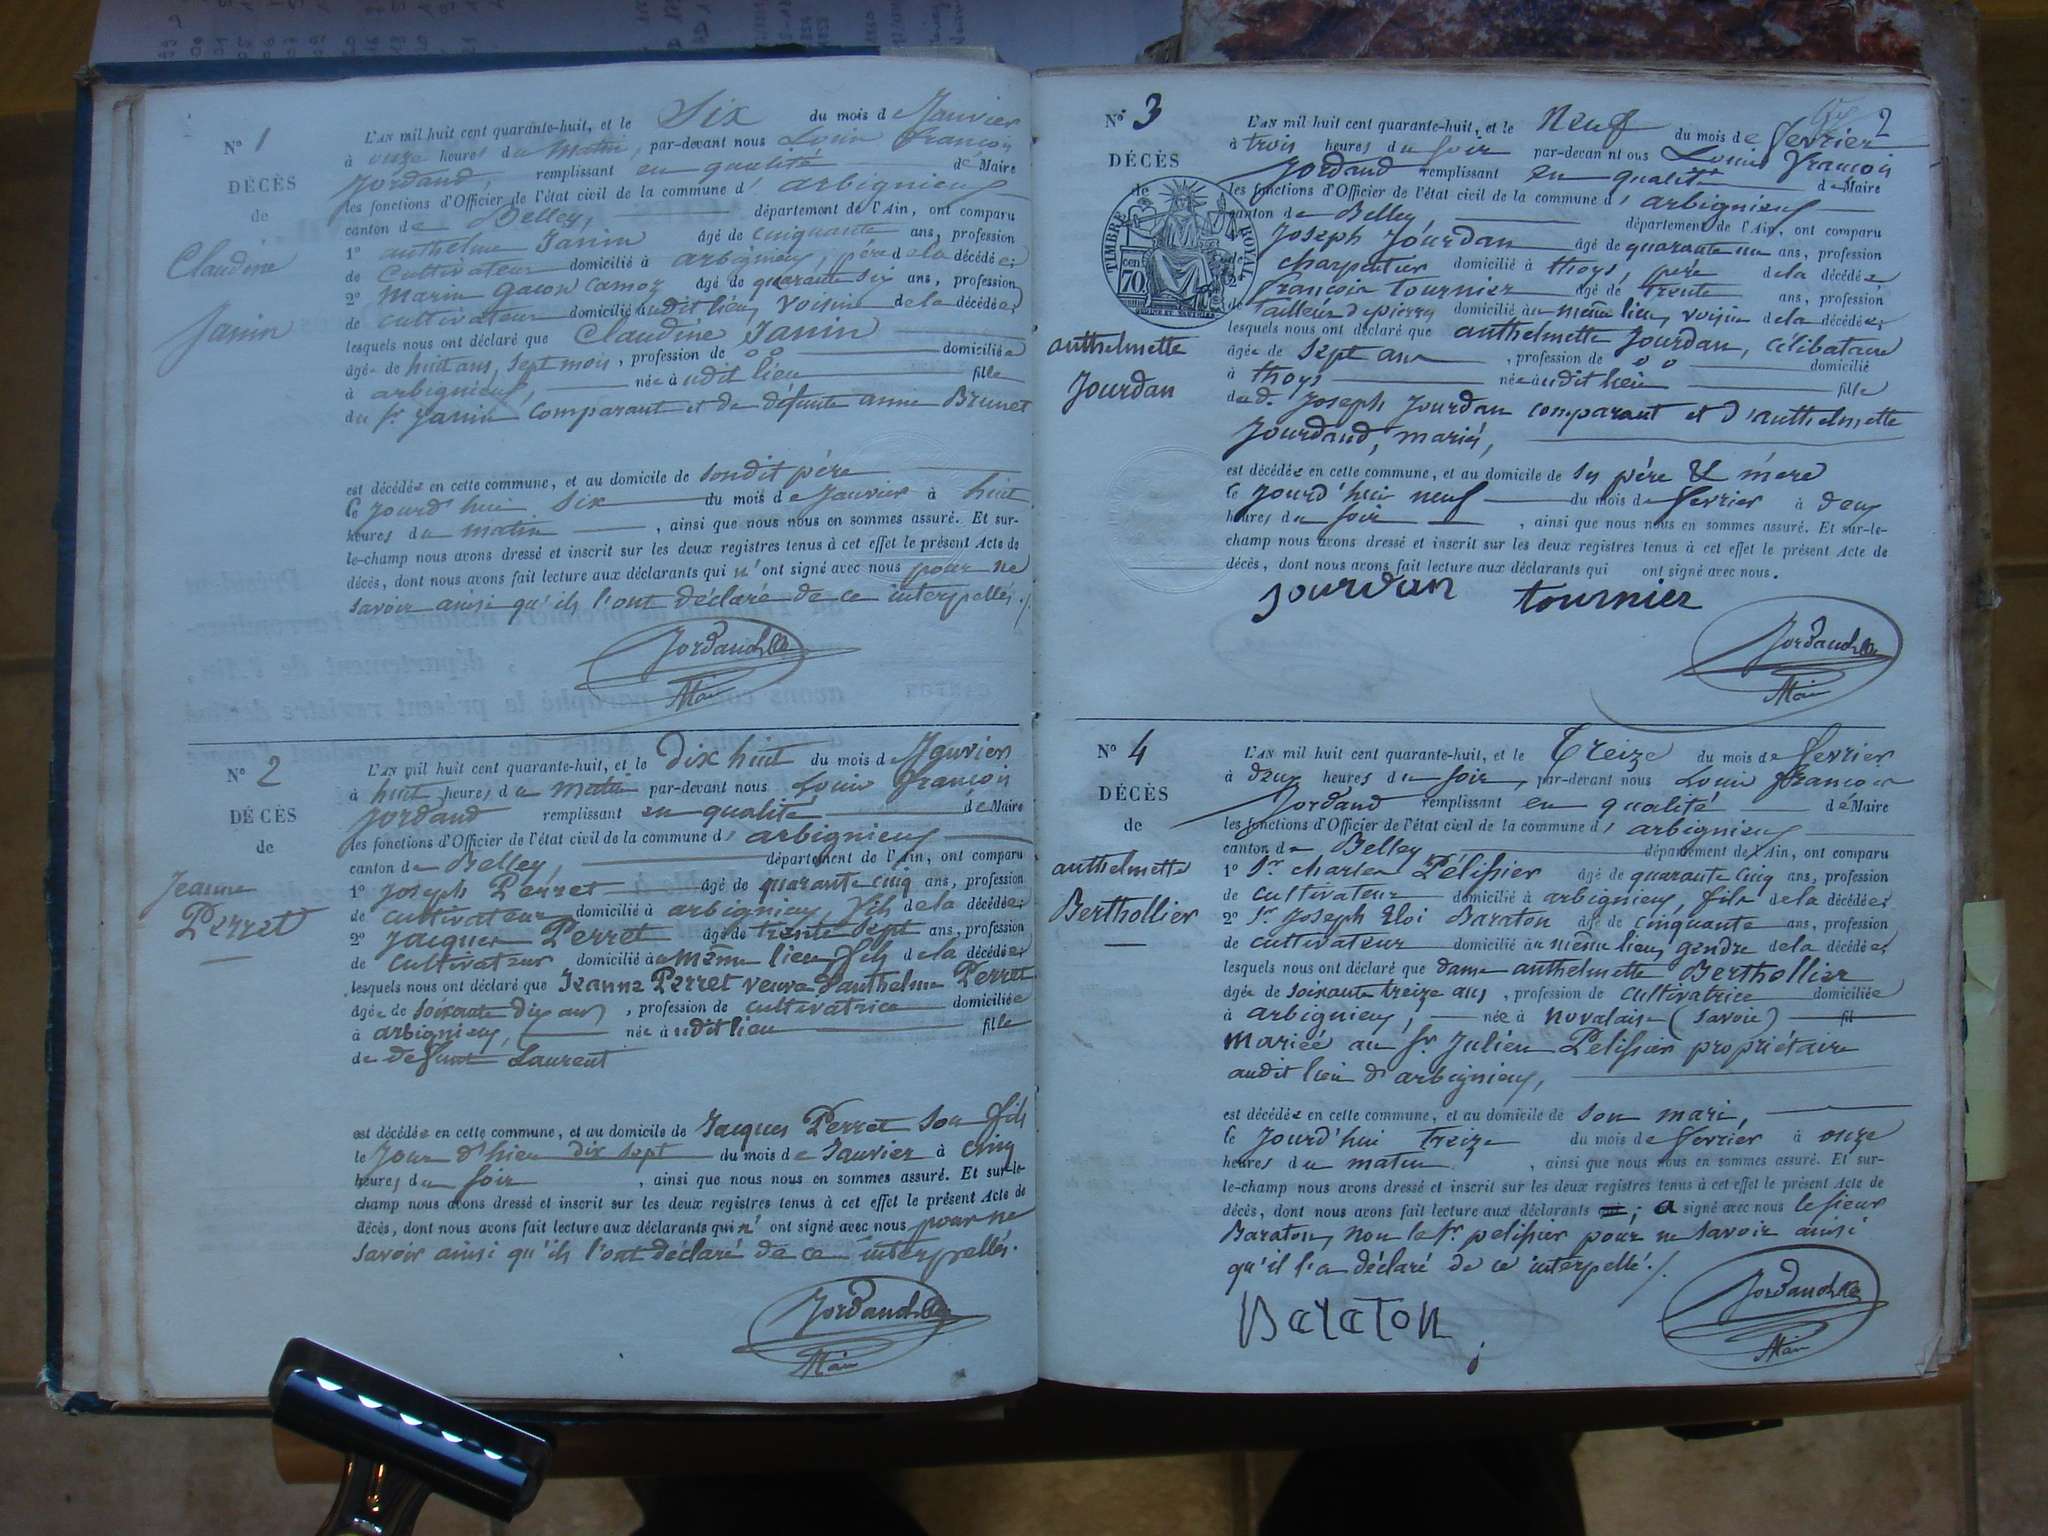 N° 1
DÉCÈS
de
Claudine
Janin
L'AN mil huit cent quarante-huit, et le Six du mois de Janvier
à onze heures du matin, par-devant nous Louis François
Jordand, remplissant en qualité de Maire
les fonctions d'Officier de l'état civil de la commune d'arbignieu
canton de Belley, département de l'Ain, ont comparu
1° anthelme Janin âgé de cinquante ans, profession
de cultivateur domicilié à arbignieu, père de la décédée;
2° marin gacon camoz âgé de quarante six ans, profession
de cultivateur domicilié audit lieu, voisin de la décédée;
lesquels nous ont déclaré que Claudine Janin
âgée de huit ans, sept mois, profession de °° domiciliée
à arbignieu, née audit lieu fille
du Sr Janin comparant et de défunte anne Brunet
est décédée en cette commune, et au domicile de sondit père
le jourd'hui six du mois de Janvier à huit
heures du matin, ainsi que nous nous en sommes assuré. Et sur-
le-champ nous avons dressé et inscrit sur les deux registres tenus à cet effet le présent Acte de
décès, dont nous avons fait lecture aux déclarants qui n'ont signé avec nous pour ne
savoir ainsi qu'ils l'ont déclaré de ce interpellés./.
Jordand
Maire
N° 2
DÉCÈS
de
Jeanne
Perret
L'AN mil huit cent quarante-huit, et le dix huit du mois de Janvier
à huit heures du matin par-devant nous Louis François
Jordand remplissant en qualité de Maire
les fonctions d'Officier de l'état civil de la commune d'arbignieu
canton de Belley, département de l'Ain, ont comparu
1° Joseph Perret âgé de quarante cinq ans, profession
de cultivateur domicilié à arbignieu, fils de la décédée;
2° Jacques Perret âgé de trente sept ans, profession
de cultivateur domicilié au même lieu, fils de la décédée;
lesquels nous ont déclaré que Jeanne Perret veuve d'anthelme Perret
âgée de soixante dix ans, profession de cultivatrice domiciliée
à arbignieu, née audit lieu fille
de defunt Laurent
est décédée en cette commune, et au domicile de Jacques Perret son fils
le jour d'hier dix sept du mois de Janvier à cinq
heures du soir, ainsi que nous nous en sommes assuré. Et sur-le-
champ nous avons dressé et inscrit sur les deux registres tenus à cet effet le présent Acte de
décès, dont nous avons fait lecture aux déclarants qui n'ont signé avec nous pour ne
savoir ainsi qu'ils l'ont déclaré de ce interpellés.
Jordand
Maire
2
N° 3
DÉCÈS
de
TIMBRE ROYAL
70 cen
anthelmette
Jourdan
L'AN mil huit cent quarante-huit, et le neuf du mois de fevrier
à trois heures du soir par-devant nous Louis François
Jordand remplissant en qualité de Maire
les fonctions d'Officier de l'état civil de la commune d'arbignieu
canton de Belley, département de l'Ain, ont comparu
Joseph Jourdan âgé de quarante un ans, profession
charpentier domicilié à thoys, père de la décédée
françois tournier âgé de trente ans, profession
de tailleur de pierre domicilié au même lieu, voisin de la décédée;
lesquels nous ont déclaré que anthelmette Jourdan, célibataire
âgée de sept ans, profession de °° domicilié
à thoys née audit lieu fille
de d. Joseph Jourdan comparant et d'anthelmette
Jourdand, mariés,
est décédée en cette commune, et au domicile de ses père & mère
le jourd'hui neuf du mois de fevrier à deux
heures du soir, ainsi que nous nous en sommes assuré. Et sur-le-
champ nous avons dressé et inscrit sur les deux registres tenus à cet effet le présent Acte de
décès, dont nous avons fait lecture aux déclarants qui ont signé avec nous.
Jourdan tournier
Jordand
Maire
N° 4
DÉCÈS
de
anthelmette
Berthollier
L'AN mil huit cent quarante-huit, et le Treize du mois de fevrier
à deux heures du soir, par-devant nous Louis françois
Jordand remplissant en qualité de Maire
les fonctions d'Officier de l'état civil de la commune d'arbignieu
canton de Belley département de l'Ain, ont comparu
1° Sr charles Pélissier âgé de quarante cinq ans, profession
de cultivateur domicilié à arbignieu, fils de la décédée;
2° Sr Joseph Eloi Baraton âgé de cinquante ans, profession
de cultivateur domicilié au même lieu, gendre de la décédée;
lesquels nous ont déclaré que dame anthelmette Berthollier
âgée de soixante treize ans, profession de cultivatrice domiciliée
à arbignieu, née à novalaise (savoie) fil
mariée au Sr Julien Pelissier propriétaire
audit lieu d'arbignieu,
est décédée en cette commune, et au domicile de son mari,
le jourd'hui treize du mois de fevrier à onze
heures du matin, ainsi que nous nous en sommes assuré. Et sur-
le-champ nous avons dressé et inscrit sur les deux registres tenus à cet effet le présent Acte de
décès, dont nous avons fait lecture aux déclarants; a signé avec nous le sieur
Baraton, non le Sr pelissier pour ne savoir ainsi
qu'il l'a déclaré de ce interpellé./.
BARATON
Jordand
Maire